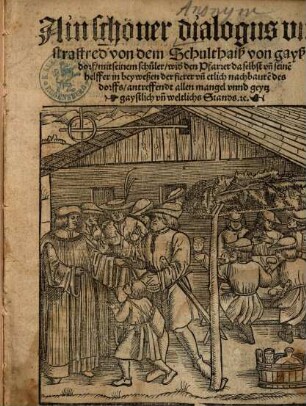 Anonym
Ain schöner dialogus vn
straffred von dem Schulthaiß von gayß
dorff/mit seinem schüler/wid den Pfarrer da selbst vñ seinẽ
helffer in beyweßen der fierer vñ etlich nachbaurẽ des
dorffs/antreffendt allen mangel vnnd geytz
gaystlich vñ weltlichs Stands.ꝛc.